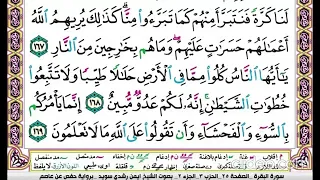 لَنَا كَرَّةً فَنَتَبَرَّأَ مِنْهُمْ كَمَا تَبَرَّءُوا۟ مِنَّا كَذَٰلِكَ يُرِيهِمُ ٱللَّهُ
أَعْمَـٰلَهُمْ حَسَرَٰتٍ عَلَيْهِمْ وَمَا هُم بِخَـٰرِجِينَ مِنَ ٱلنَّارِ ١٦٧
يَـٰٓأَيُّهَا ٱلنَّاسُ كُلُوا۟ مِمَّا فِى ٱلْأَرْضِ حَلَـٰلًا طَيِّبًا وَلَا تَتَّبِعُوا۟
خُطُوَٰتِ ٱلشَّيْطَـٰنِ إِنَّهُۥ لَكُمْ عَدُوٌّ مُّبِينٌ ١٦٨ إِنَّمَا يَأْمُرُكُم
بِٱلسُّوٓءِ وَٱلْفَحْشَآءِ وَأَن تَقُولُوا۟ عَلَى ٱللَّهِ مَا لَا تَعْلَمُونَ ١٦٩
سورة البقرة - الصفحة ٢٥ - الحزب ٣ - الجزء ٢ - بصوت الشيخ أيمن رشدي سويد - برواية حفص عن عاصم